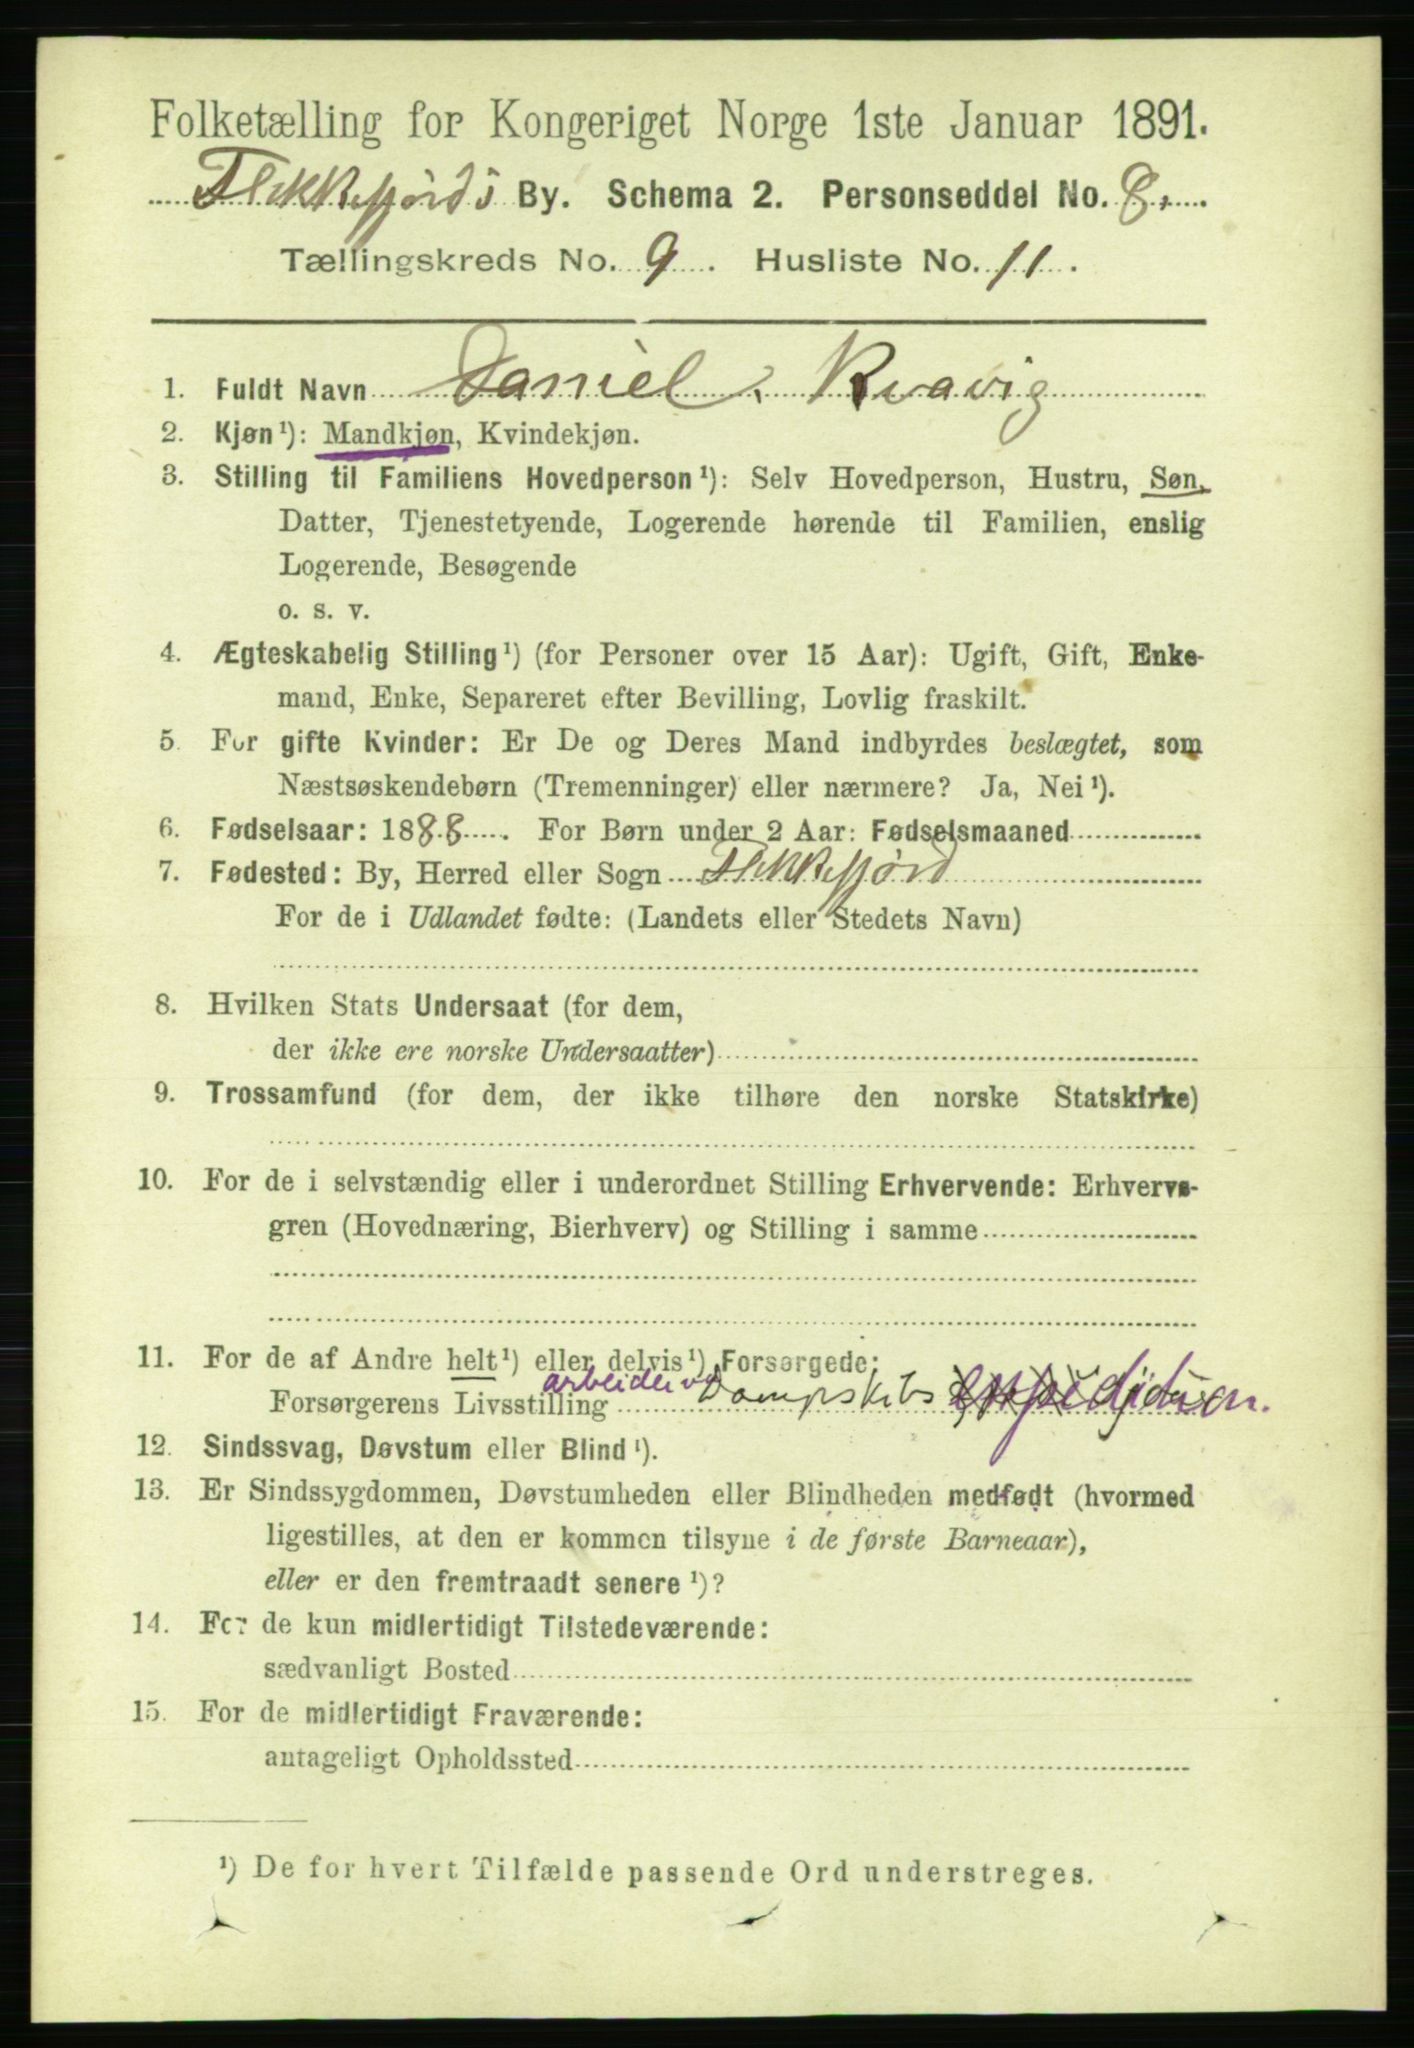 Folketælling for Kongeriget Norge 1ste Januar 1891.
Flekkefjords By. Schema 2. Personseddel No. 8.
Tællingskreds No. 9. Husliste No. 11.
1. Fuldt Navn Daniel. Kvavig
2. Kjøn¹): Mandkjøn, Kvindekjøn.
3. Stilling til Familiens Hovedperson¹): Selv Hovedperson, Hustru, Søn,
Datter, Tjenestetyende, Logerende hørende til Familien, enslig
Logerende, Besøgende
o. s. v.
4. Ægteskabelig Stilling¹) (for Personer over 15 Aar): Ugift, Gift, Enke-
mand, Enke, Separeret efter Bevilling, Lovlig fraskilt.
5. For gifte Kvinder: Er De og Deres Mand indbyrdes beslægtet, som
Næstsøskendebørn (Tremenninger) eller nærmere? Ja, Nei¹).
6. Fødselsaar: 1888. For Børn under 2 Aar: Fødselsmaaned
7. Fødested: By, Herred eller Sogn Flekkefjord
For de i Udlandet fødte: (Landets eller Stedets Navn)
8. Hvilken Stats Undersaat (for dem,
der ikke ere norske Undersaatter)
9. Trossamfund (for dem, der ikke tilhøre den norske Statskirke)
10. For de i selvstændig eller i underordnet Stilling Erhvervende: Erhvervs-
gren (Hovednæring, Bierhverv) og Stilling i samme
11. For de af Andre helt¹) eller delvis¹) Forsørgede:
arbeider v
Forsørgerens Livsstilling Dampskibs
12. Sindssvag, Døvstum eller Blind¹).
13. Er Sindssygdommen, Døvstumheden eller Blindheden medfødt (hvormed
ligestilles, at den er kommen tilsyne i de første Barneaar),
eller er den fremtraadt senere¹)?
14. For de kun midlertidigt Tilstedeværende:
sædvanligt Bosted
15. For de midlertidigt Fraværende:
antageligt Opholdssted
¹) De for hvert Tilfælde passende Ord understreges.